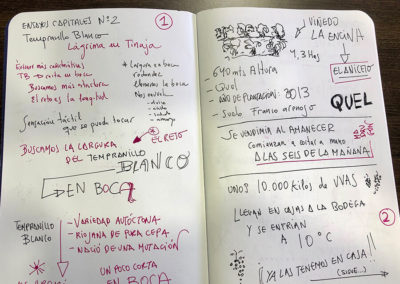 ENSAYOS CAPITALES Nº2
Tempranillo Blanco
Lágrima en Tinaja
1
TB → corto en boca
Buscamos más
El
Largura en boca
redondez
en boca
Sensación táctil
que se puede tocar
EL RETO
BUSCAMOS LA LARGURA
DEL TEMPRANILLO
BLANCO
EN BOCA
TEMPRANILLO
BLANCO
- VARIEDAD AUTÓCTONA
- RIOJANA DE PURA CEPA
- NACIÓ DE UNA MUTACIÓN
UN POCO CORTA
EN BOCA
VIÑEDO
LA ENCINA
4,3 Has
EL ANICETO
- 640 mts Altura
- Quel
- AÑO DE PLANTACIÓN: 2013
- Suelo Franco arenoso
QUEL
SE VENDIMIA AL AMANECER
comienzan a cortar a mano
A LAS SEIS DE LA MAÑANA
UNOS 10.000 Kilos de UVAS
LLEGAN EN CAJAS A LA BODEGA
Y SE ENFRIAN
A 10°C
2
¡YA LAS TENEMOS EN CASA!!
(SIGUE...)